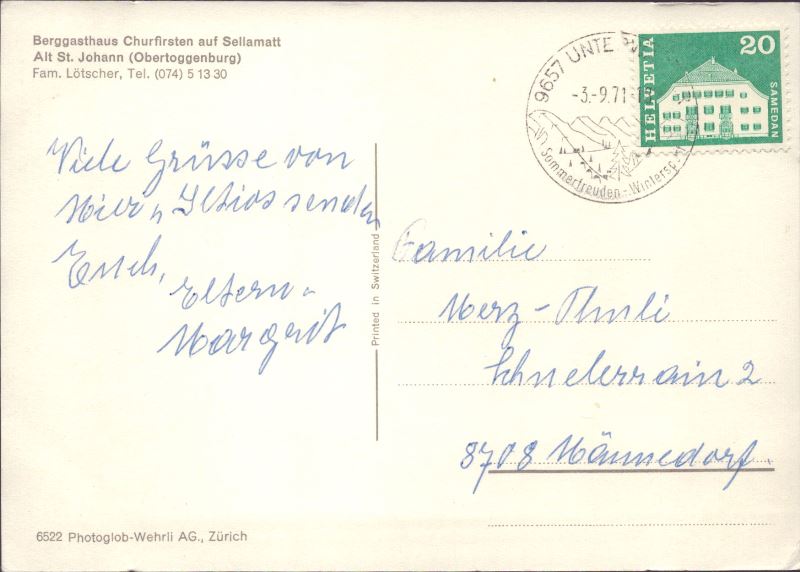 Berggasthaus Churfirsten auf Sellamatt
Alt St. Johann (Obertoggenburg)
Fam. Lötscher, Tel. (074) 5 13 30
Viele Grüsse von
Hier u Iltios senden
Euch,
Eltern u
Margrit
Printed in Switzerland
6522 Photoglob-Wehrli AG., Zürich
9657 UNTE
-3.-9.71
Sommerfreuden - Wintersp
HELVETIA
20
SAMEDAN
Familie
Merz - Thuli
Schnelerrain 2
8708 Männedorf.